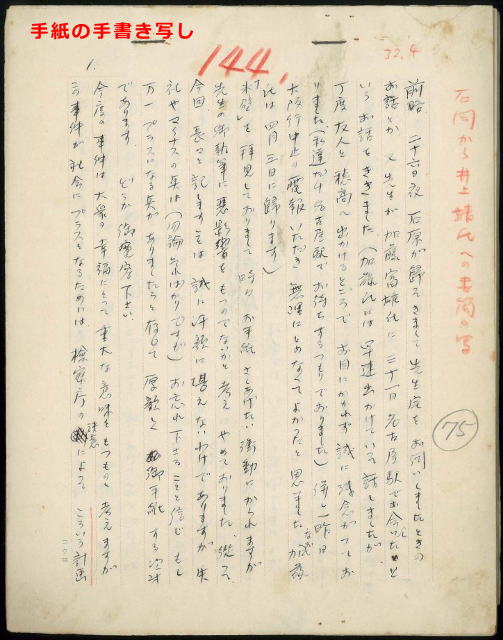 手紙の手書き写し
144.
32.4
石岡から井上靖氏への書簡の写
75
1.
前略 二十六日夜 石原が帰って来まして 先生宅をお伺いしましたときの
お話とか 又 先生が加藤富雄氏に 三十一日 名古屋駅でお会いしたいと
いうお話をききました (加藤氏には 早速出かけていって 話しましたが、
丁度 友人と 穂高へ出かけるところで お目にかかれず 誠に残念がってお
りました) (私達だけ 名古屋駅で お待ちするつもりでありました) 併し 一昨日
大阪行中止の電報いただき 無理におとめなくてよかったと思いました 加藤
氏は 四月三日に帰ります)
「氷壁」を 拝見しておりまして 時々 お手紙 さしあげたい衝動にかられますが
先生の御執筆に 悪影響をもつのでないかと考え やめておりました、従って
今回 長々と 記しますことは 誠に汗顔に堪えないわけでありますが 失
礼やマイナスの点は (勿論 そればかりですが) お忘れ下さることと信じ もし
万一 プラスになる点が ありましたらと存じて 厚歎く 御手紙する次第
であります どうか御寛容下さい.
今度の事件は 大衆の幸福にとって 重大な意味をもつものと 考えますが
この事件が 社会に プラスとなるためには、検察庁の 決意 によって こういう計画